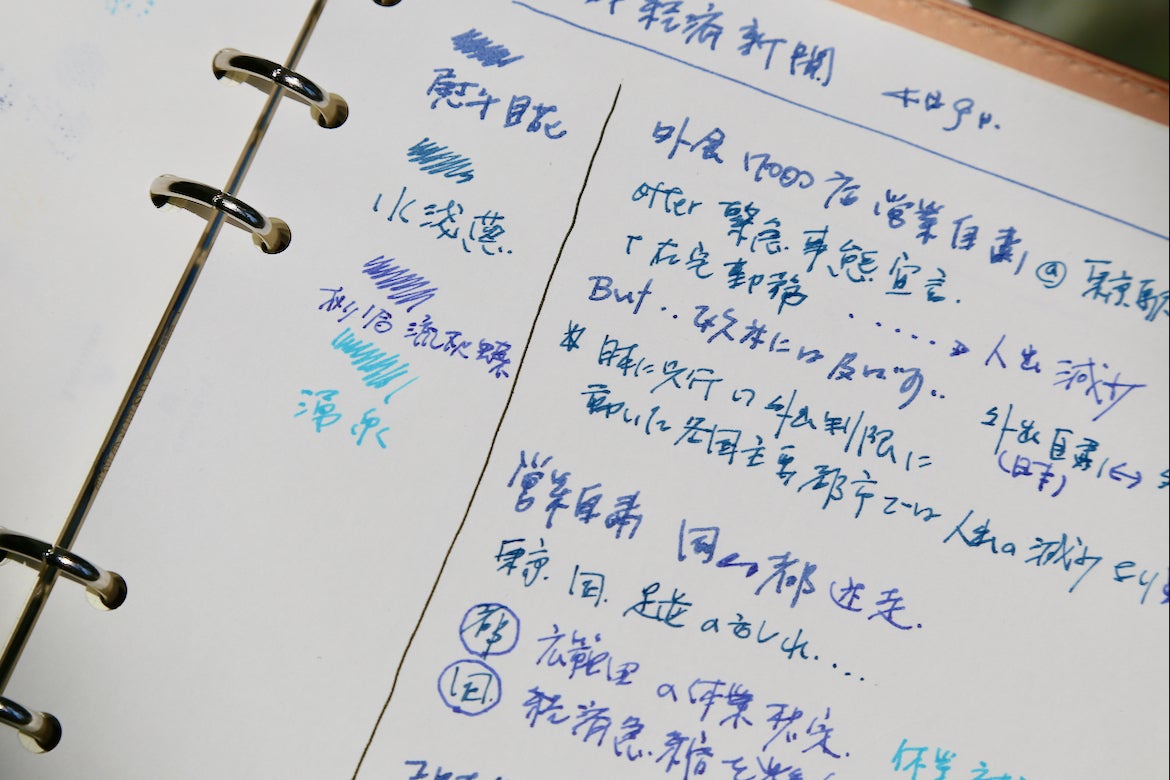 経済新聞
4日9ル.
熨斗目花
水浅葱.
外食 1700店 営業自粛 @ 東京駅
after 緊急事態宣言.
↑在宅勤務 ‥‥‥→ 人出 減少
But‥欧米には及ばず‥
* 日本に先行の外出制限に
動いた各国主要都市では 人出の減少
外出自粛 ↔
(日本)
湧泉
営業自粛 国↔都 迷走.
東京. 国. 足並の乱れ‥‥
都 広範囲の休業想定.
国. 経済急縮を